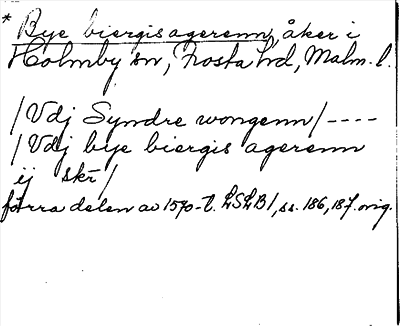 * Bye biergis agerenn, åker i
Holmby sn, Frosta hd, Malm. l.
/Vdj Syndre wongenn/----
/Vdj bye biergis agerenn
ej skr/
förra delen av 1570-t. LSLB1, ss. 186, 187. orig.